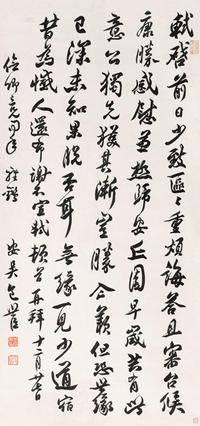 軾啓前日少致區區重煩誨答且審台候
康勝感慰兼極歸安丘園早歲共有此
意公獨先獲其漸豈勝企羨但恐世緣
已深未知果脫否耳無緣一見少道宿
昔為悵人還布謝不宣軾頓首再拜
卿同年
安吳包世臣